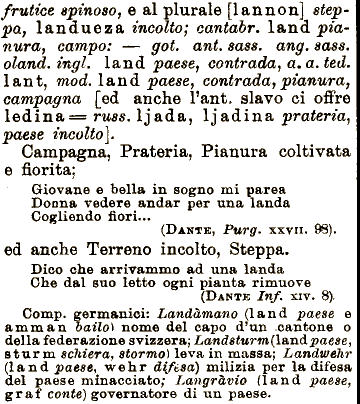 frutice spinoso, e al plurale [lannon] step-
pa, landueza incolto; cantabr. land pia-
nura, campo: — got. ant. sass. ang. sass.
oland. ingl. land paese, contrada, a. a. ted.
lant, mod. land paese, contrada, pianura,
campagna [ed anche l'ant. slavo ci offre
ledina = russ. ljada, ljadina prateria,
paese incolto].
Campagna, Prateria, Pianura coltivata
e fiorita;
Giovane e bella in sogno mi parea
Donna vedere andar per una landa
Cogliendo fiori...
(DANTE, Purg. XXVII. 98).
ed anche Terreno incolto, Steppa.
Dico che arrivammo ad una landa
Che dal suo letto ogni pianta rimuove
(DANTE Inf. XIV. 8)
Comp. germanici: Landàmano (land paese e
amman bailo) nome del capo d'un cantone o
della federazione svizzera; Landsturm (land paese,
sturm schiera, stormo) leva in massa; Landwehr
(land paese, wehr difesa) milizia per la difesa
del paese minacciato; Langràvio (land paese,
graf conte) governatore di un paese.